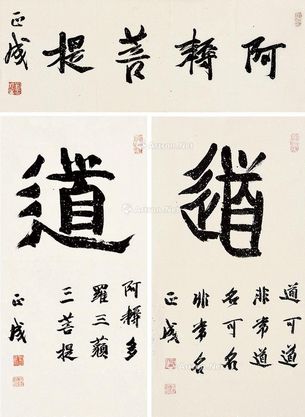 阿耨菩提
正成
道
道可道
非常道
名可名
非常名
正成
道
阿耨多
羅三藐
三菩提
正成